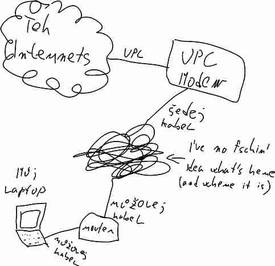 Teh
Internets
UPC
UPC
Modem
šedej
kabel
I've no fschin'
idea what's here
(and where it is)
můžolej
kabel
Můj
laptop
router
můžolej
kabel